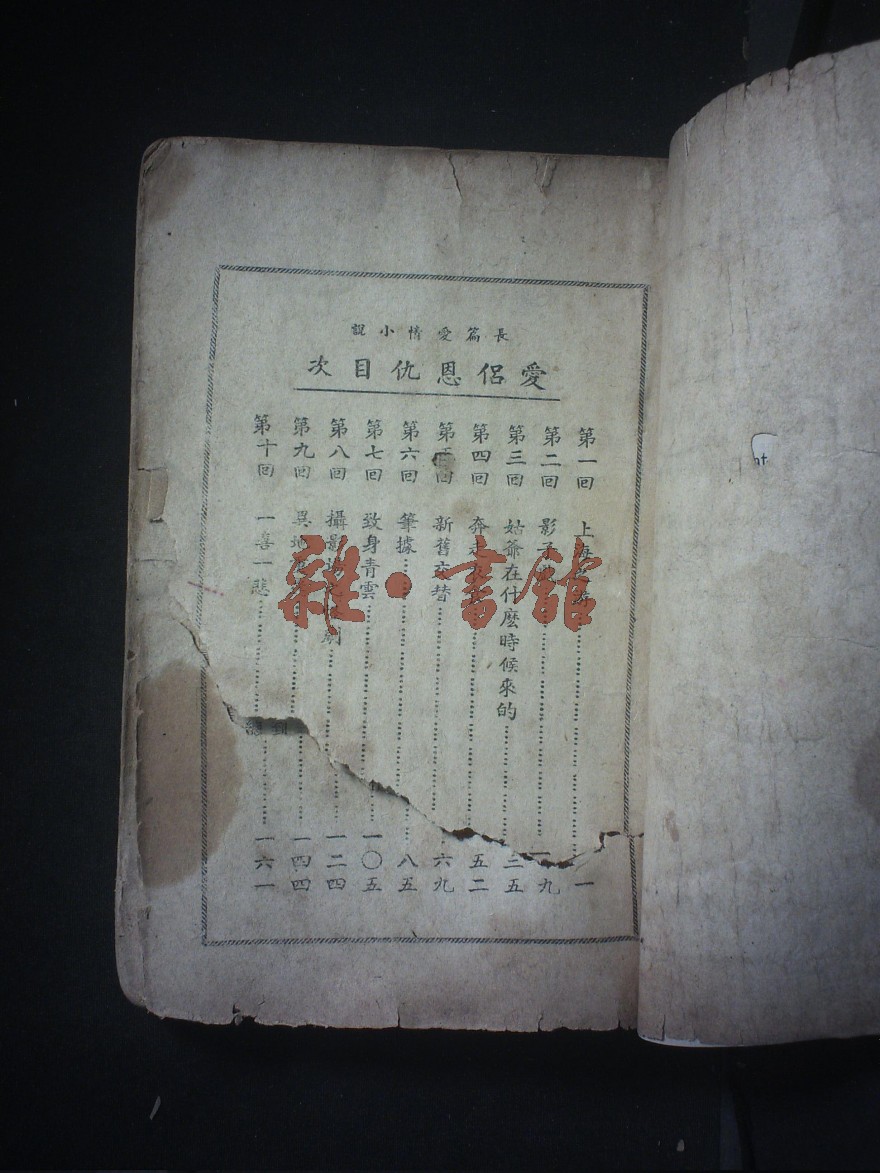 長篇愛情小說
愛侶恩仇目次
第一回 上海 一
第二回 影子 一九
第三回 姑爺在什麽時候來的 三五
第四回 奔走 五二
第五回 新舊交替 六九
第六回 筆據 八五
第七回 致身青雲 一〇五
第八回 攝影場 劇 一二四
第九回 異地 一四四
第十回 一喜一悲 一六一
雜·書館